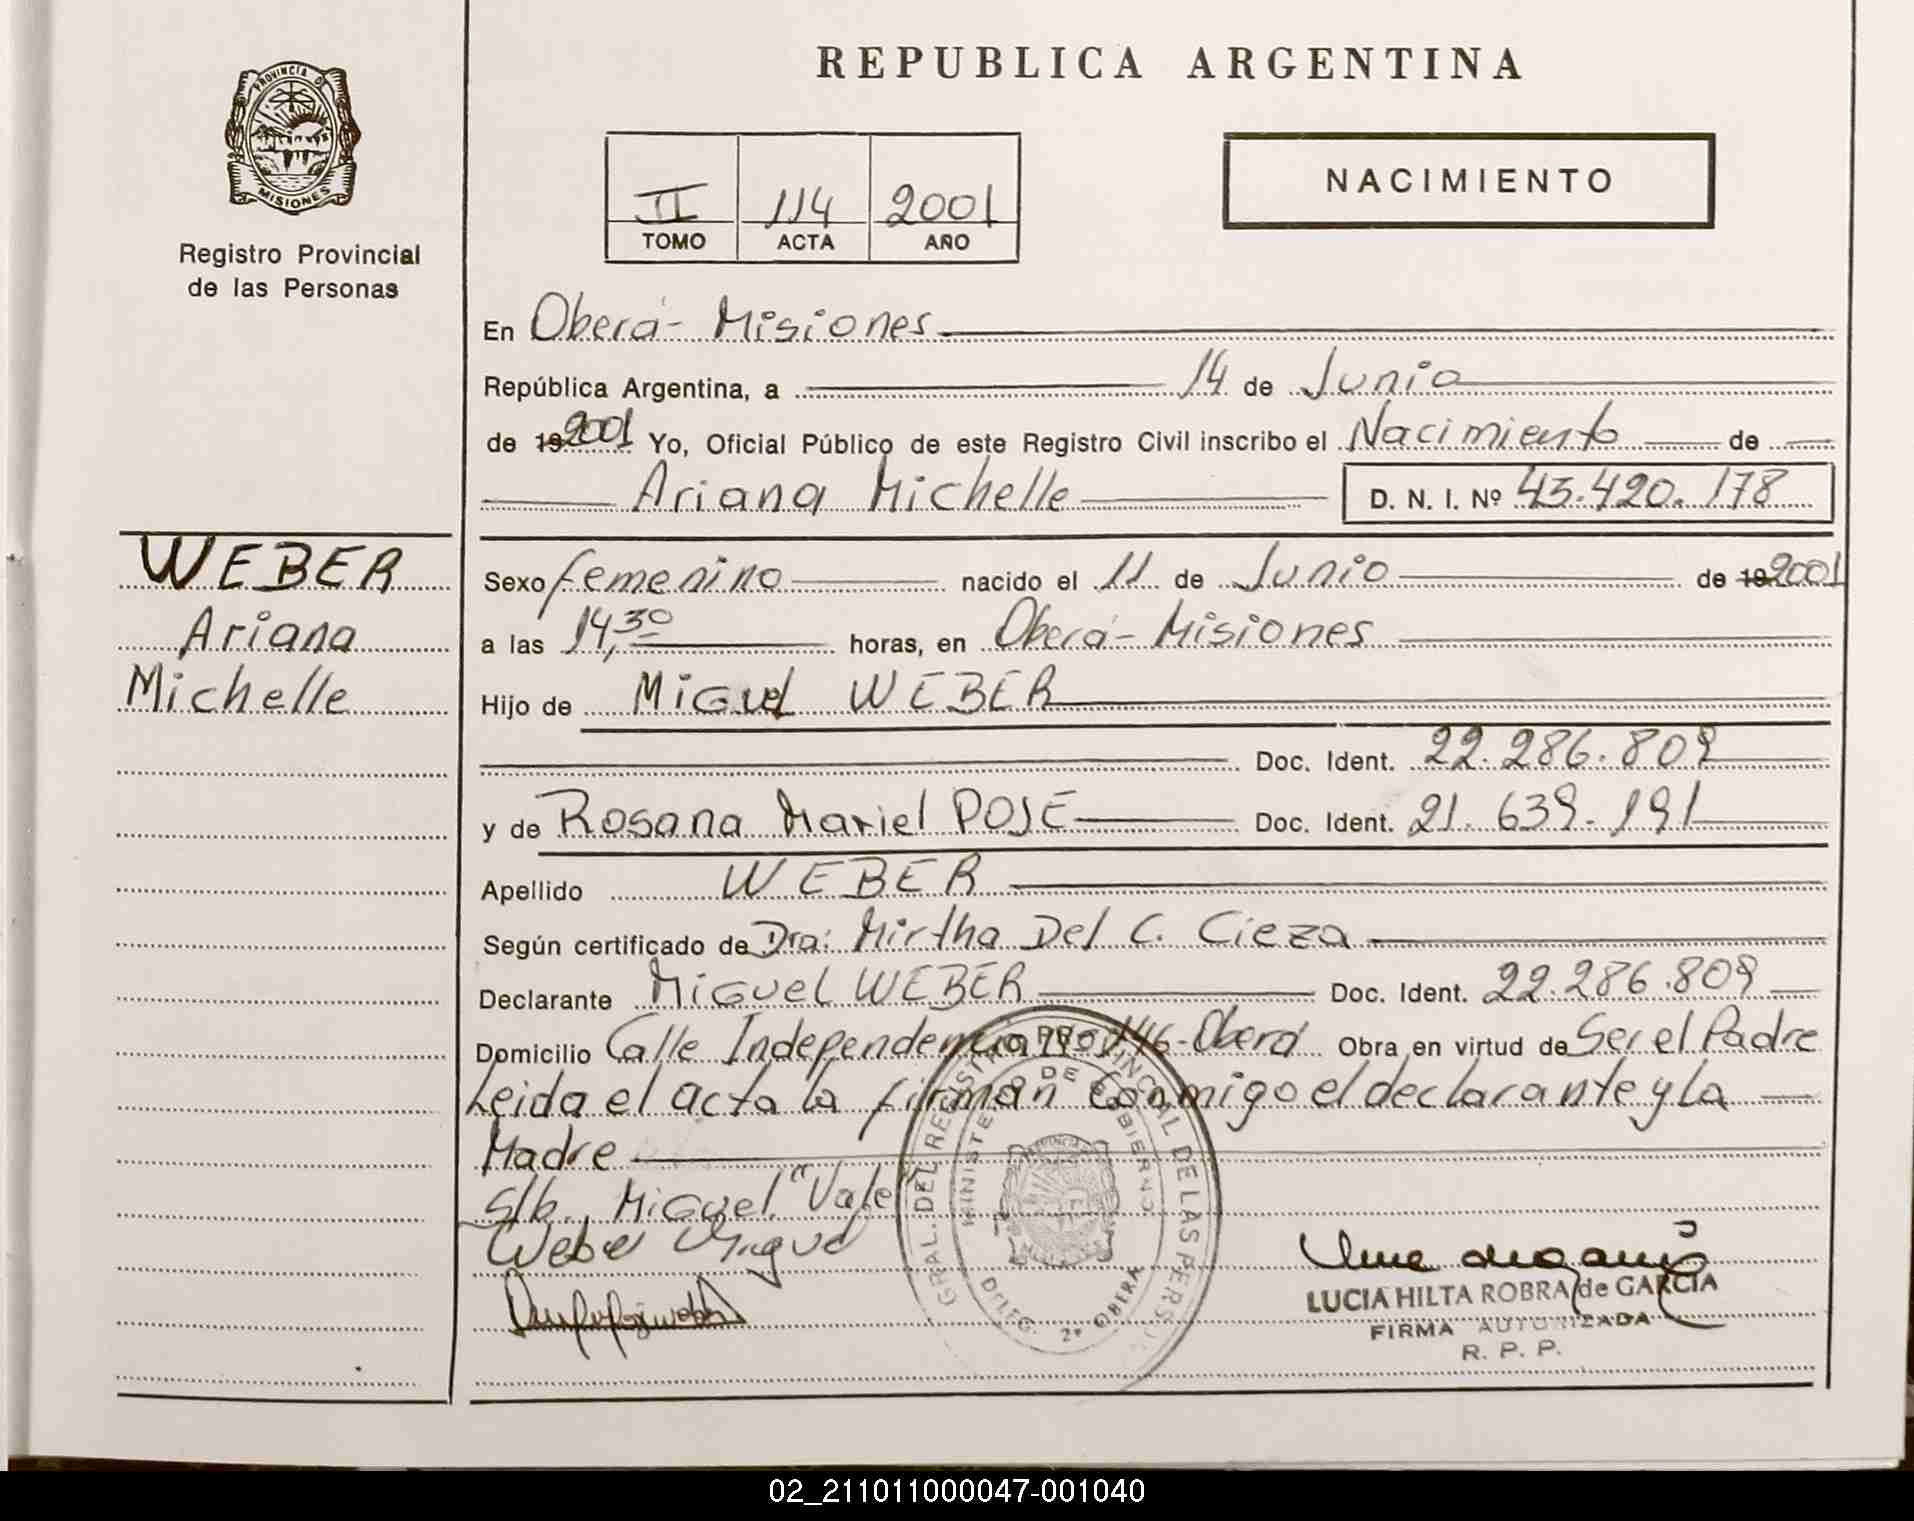 REPUBLICA ARGENTINA
PROVINCIA DE
MISIONES
Registro Provincial
de las Personas
II 114 2001
TOMO ACTA AÑO
NACIMIENTO
En Oberá- Misiones
República Argentina, a 14 de Junio
de 19 2001 Yo, Oficial Público de este Registro Civil inscribo el Nacimiento de
Ariana Michelle D. N. I. Nº 43.420.178
WEBER
Ariana
Michelle
Sexo femenino nacido el 11 de Junio de 19 2001
a las 14,30 horas, en Oberá- Misiones
Hijo de Miguel WEBER
Doc. Ident. 22.286.809
y de Rosana Mariel POSE Doc. Ident. 21.639.191
Apellido WEBER
Según certificado de Dra: Mirtha Del C. Cieza
Declarante Miguel WEBER Doc. Ident. 22.286.809
Domicilio Calle Independencia Nº 1146-Oberá Obra en virtud de Ser el Padre
Leida el acta la firman Conmigo el declarante y la
Madre
S/b. Miguel "Vale"
Weber Miguel
GRAL. DEL REGISTRO PROVINCIAL DE LAS PERSONAS
MINISTERIO DE GOBIERNO
DELEG. 2ª OBERA
LUCIA HILTA ROBRA de GARCIA
FIRMA AUTORIZADA
R. P. P.
02_211011000047-001040